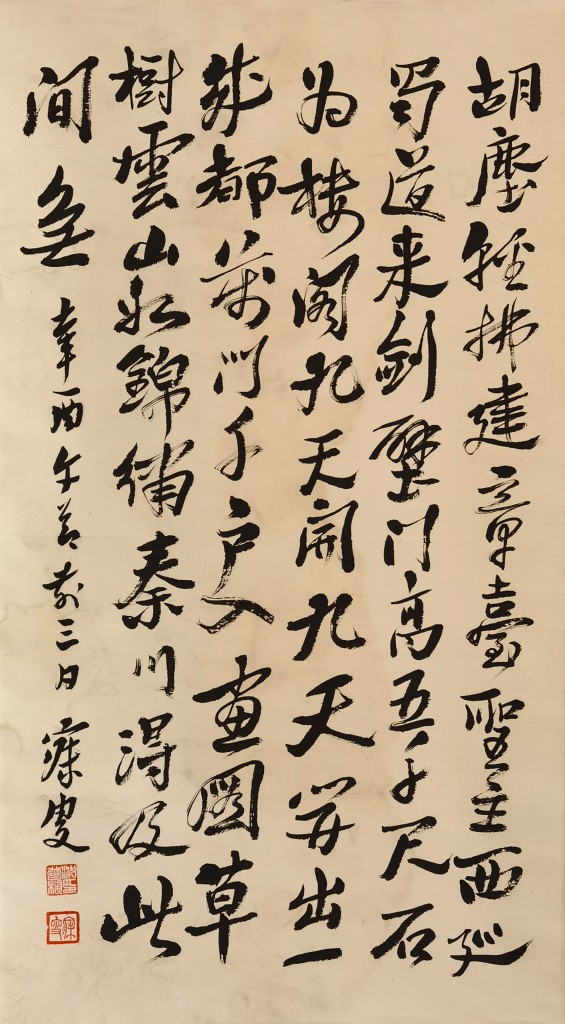 胡塵輕拂建章臺聖主西巡
蜀道来劍壁門高五千尺石
為樓閣九天開九天開出一
成都萬門千戶入畫圖草
樹雲山如錦繡秦川得及此
間無
辛酉午節前三日 寐叟